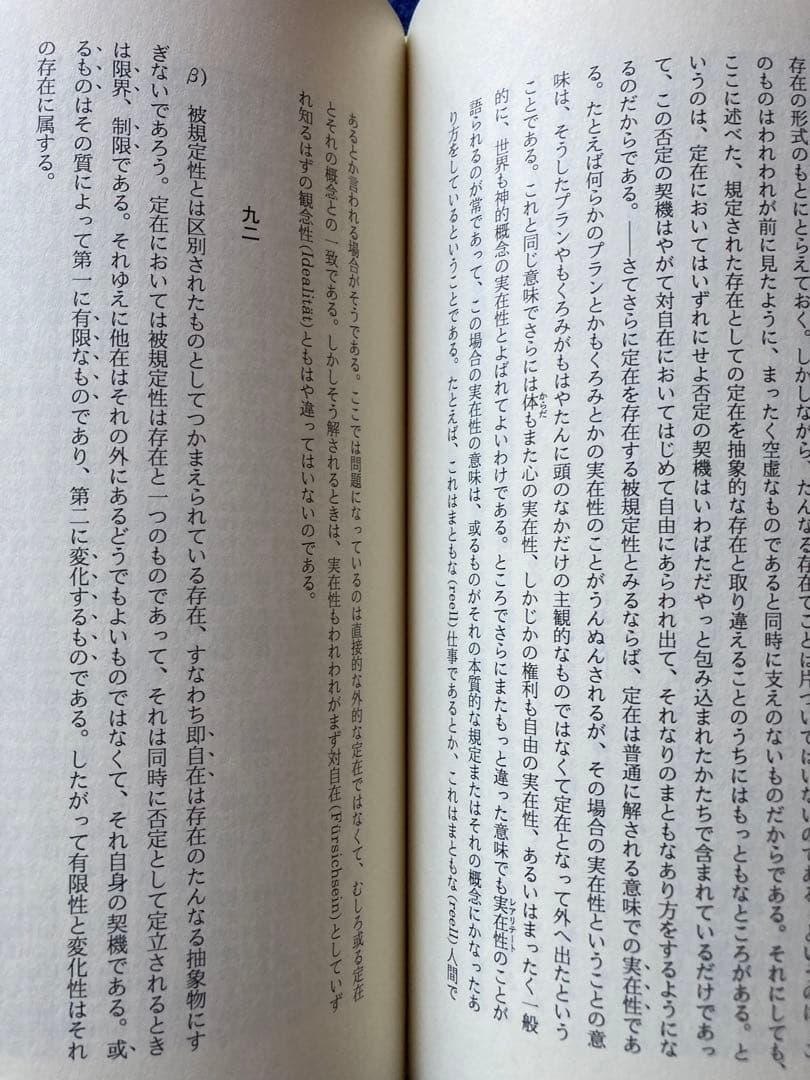 存在の形式のもとにとらえておく。しかしながら、たんなる存在でことは片づいてはいないのであ
のものはわれわれが前に見たように、まったく空虚なものであると同時に支えのないものだからである。それにしても、
ここに述べた、規定された存在としての定在を抽象的な存在と取り違えることのうちにはもっともなところがある。と
いうのは、定在においてはいずれにせよ否定の契機はいわばただやっと包み込まれたかたちで含まれているだけであっ
て、この否定の契機はやがて対自在においてはじめて自由にあらわれ出て、それなりのまともなあり方をするようにな
るのだからである。――さてさらに定在を存在する被規定性とみるならば、定在は普通に解される意味での実在性であ
る。たとえば何らかのプランとかもくろみとかの実在性のことがうんぬんされるが、その場合の実在性ということの意
味は、そうしたプランやもくろみがもはやたんに頭のなかだけの主観的なものではなくて定在となって外へ出たという
ことである。これと同じ意味でさらには体もまた心の実在性、しかじかの権利も自由の実在性、あるいはまったく一般
的に、世界も神的概念の実在性とよばれてよいわけである。ところでさらにまたもっと違った意味でも実在性のことが
語られるのが常であって、この場合の実在性の意味は、或るものがそれの本質的な規定またはそれの概念にかなったあ
り方をしているということである。たとえば、これはまともな(reell)仕事であるとか、これはまともな(reell)人間で
あるとか言われる場合がそうである。ここでは問題になっているのは直接的な外的な定在ではなくて、むしろ或る定在
とそれの概念との一致である。しかしそう解されるときは、実在性もわれわれがまず対自在(Fürsichsein)としていず
れ知るはずの観念性(Idealität)ともはや違ってはいないのである。
九二
β) 被規定性とは区別されたものとしてつかまえられている存在、すなわち即自在は存在のたんなる抽象物にす
ぎないであろう。定在においては被規定性は存在と一つのものであって、それは同時に否定として定立されるとき
は限界、制限である。それゆえに他在はそれの外にあるどうでもよいものではなくて、それ自身の契機である。或
るものはその質によって第一に有限なものであり、第二に変化するものである。したがって有限性と変化性はそれ
の存在に属する。